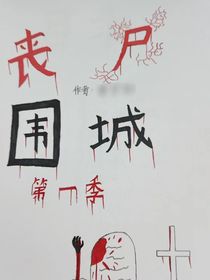 丧尸
作者
围城
第一季